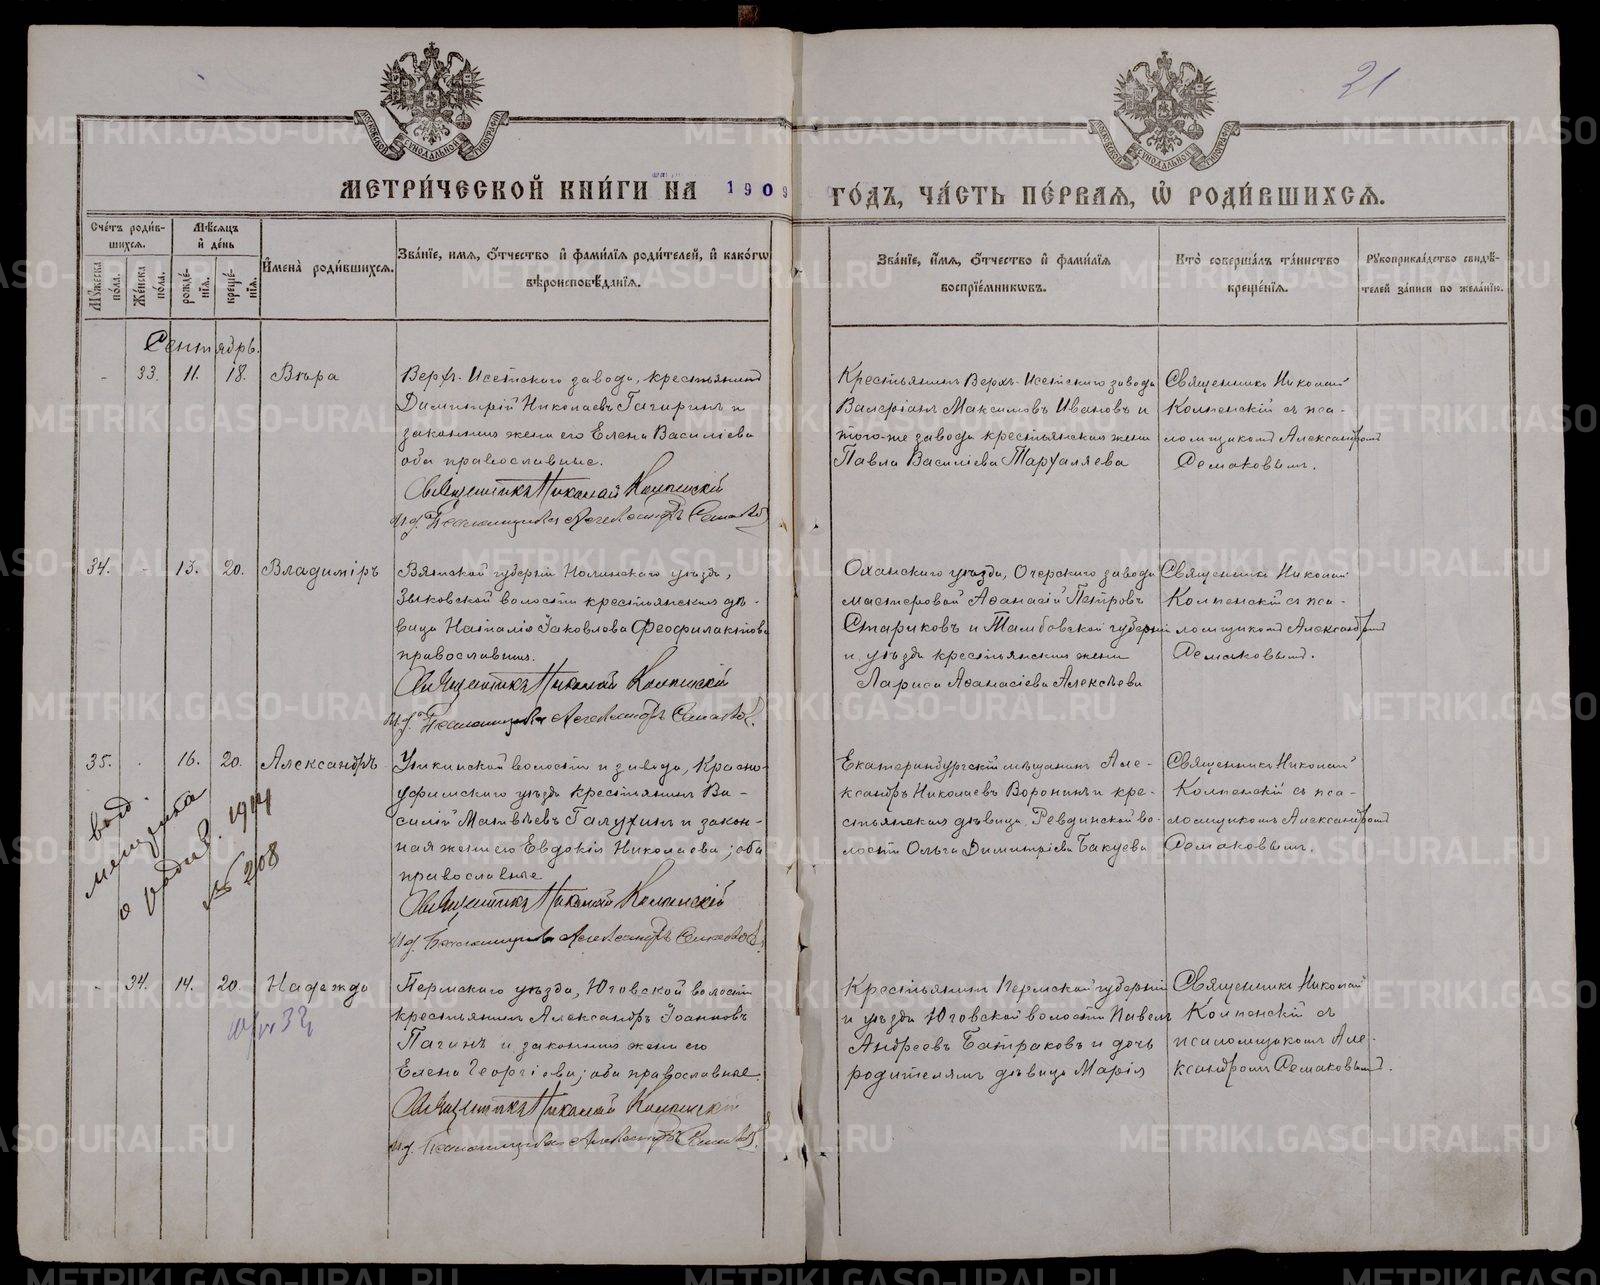 21
МЕТРИ́ЧЕСКОЙ КНИ́ГИ НА 1909 ГО́ДЪ, ЧА́СТЬ ПЕ́РВАЯ, Ѡ РОДИ́ВШИХСѦ.
Сче́тъ роди́вшихся.
Мꙋ́жеска по́ла.
Же́нска по́ла.
Мѣ́сяцъ и҆ де́нь
рожде́нїя.
креще́нїя.
И҆мена̀ роди́вшихся.
Зва́нїе, имя, ѻ҆́тчество и҆ фами́лїя роди́телей, и҆ како́гѡ вѣроисповѣ́данїя.
Зва́нїе, и҆́мя, ѻ҆́тчество и҆ фами́лїя воспрїе́мникѡвъ.
Кто̀ соверша́лъ та́инство креще́нїя.
Рꙋкоприкла́дство свидѣ́телей за́писи по жела́нїю.
Сентябрь.
- 33. 11. 18. Вѣра
Верх-Исетского завода, крестьянинъ
Димитрій Николаевъ Гагаринъ и
законная жена его Елена Василіева
оба православные.
Священникъ Николай Колпенскій
И. д. Псаломщика Александръ Семаковъ
Крестьянинъ Верхъ-Исетского завода
Валеріанъ Максимовъ Ивановъ и
того-же завода крестьянская жена
Павла Василіева
Священникъ Николай
Колпенскій съ пса-
ломщикомъ Александромъ
Семаковымъ.
34. - 13. 20. Владиміръ
Вятской губерніи Нолинского уѣзда,
Зыковской волости крестьянская дѣ-
вица Наталія Іаковлова Феофилактова
православная.
Священникъ Николай Колпенскій
И. д. Псаломщика Александръ Семаковъ.
Оханского уѣзда, Очерского завода
мастеровой Аѳанасій Петровъ
Стариковъ и Тамбовской губерніи
и уѣзда крестьянская жена
Лариса Аѳанасіева Алексѣева
Священникъ Николай
Колпенскій съ пса-
ломщикомъ Александромъ
Семаковымъ.
35. . 16. 20. Александръ
Уткинской волости и завода, Красно-
уфимского уѣзда крестьянинъ Ва-
силій Матвѣевъ Галухинъ и закон-
ная жена его Евдокія Николаева; оба
православные
Священникъ Николай Колпенскій
И. д. Псаломщика Александръ Семаковъ.
Екатеринбургскій мѣщанинъ Але-
ксандръ Николаевъ Воронинъ и кре-
стьянская дѣвица Ревдинской во-
лости Ольга Димитріева Бакуева
Священникъ Николай
Колпенскій съ пса-
ломщикомъ Александромъ
Семаковымъ.
выд.
метрика
о родив. 1914
№ 208
- 34. 14. 20. Надежда
Пермского уѣзда, Юговской волости
крестьянинъ Александръ Іоанновъ
Пагинъ и законная жена его
Елена Георгіева; оба православные.
Священникъ Николай Колпенскій
И. д. Псаломщика Александръ Семаковъ.
Крестьянинъ Пермской губерніи
и уѣзда Юговской волости Павелъ
Андреевъ Батраковъ и дочь
родителямъ дѣвица Марія
Священникъ Николай
Колпенскій съ
псаломщикомъ Але-
ксандромъ Семаковымъ.
METRIKI.GASO-URAL.RU